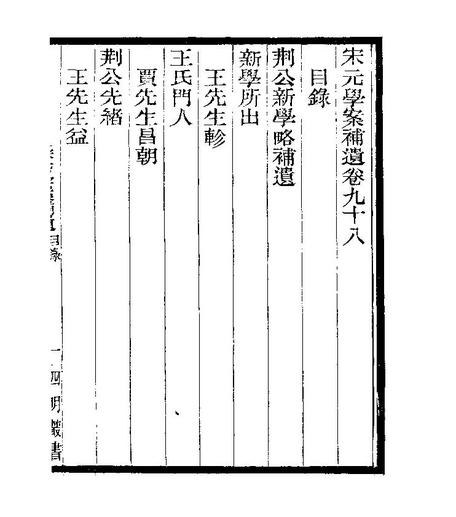 宋元學案補遺卷九十八
目錄
荆公新學略補遺
新學所出
王先生軫
王氏門人
賈先生昌朝
荆公先緒
王先生益
目錄
一四明叢書